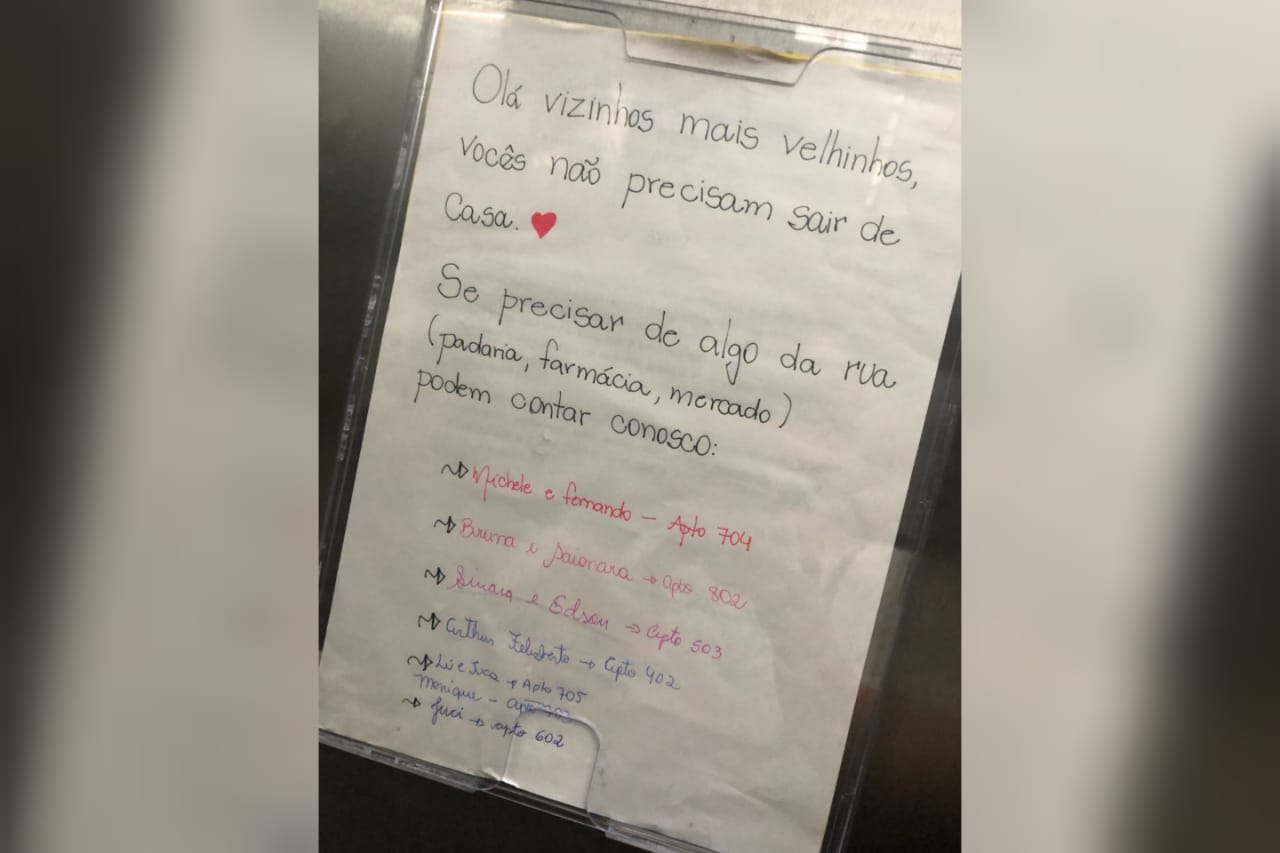 Olá vizinhos mais velhinhos,
vocês não precisam sair de
Casa. ♥
Se precisar de algo da rua
(padaria, farmácia, mercado)
podem contar conosco:
Michele e fernando – Apto 704
Bruna e Saionara → apto 802
e Edson → Apto 503
Arthur Felisberto → Apto 402
Apto 705
Monique –
Juci → apto 602